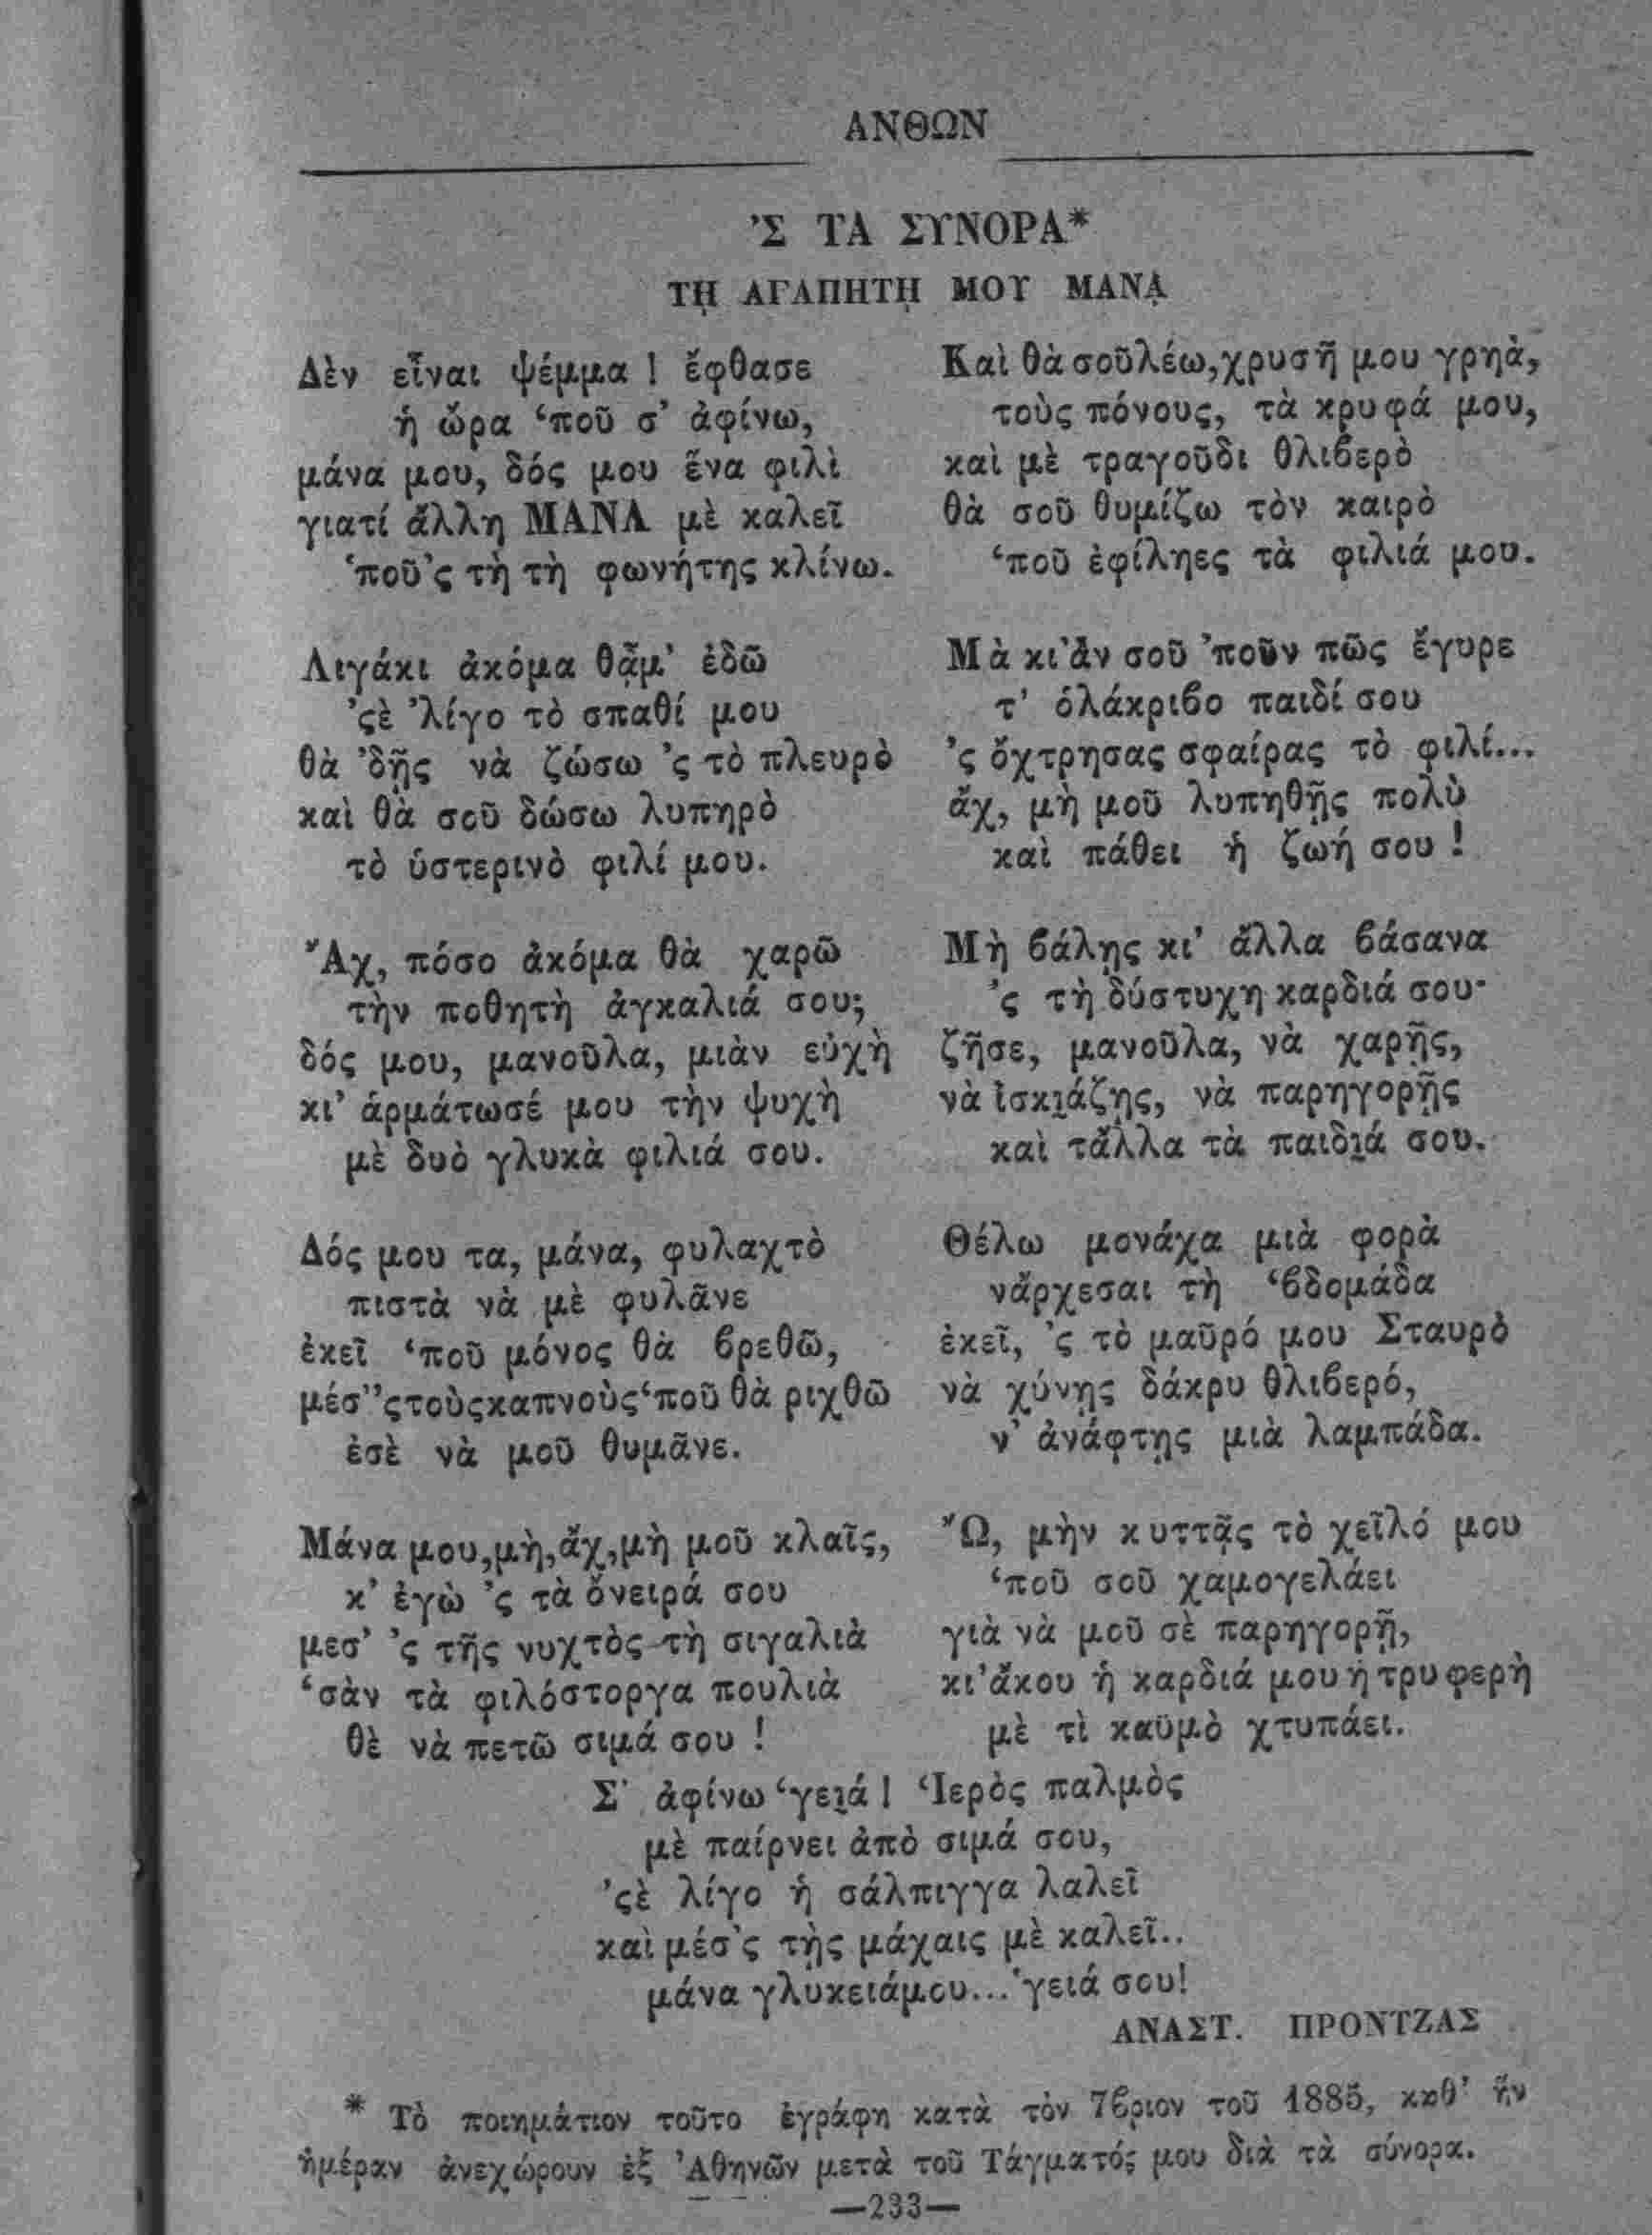 ΑΝΘΩΝ
’Σ ΤΑ ΣΥΝΟΡΑ*
ΤΗͺ ΑΓΑΠΗΤΗͺ ΜΟΥ ΜΑΝΑͺ
Δὲν εἶναι ψέμμα ! ἔφθασε
ἡ ὥρα ‘ποῦ σ’ ἀφίνω,
μάνα μου, δός μου ἕνα φιλὶ
γιατί ἄλλη ΜΑΝΑ μὲ καλεῖ
‘ποῦ’ς τὴ τὴ φωνήτης κλίνω.
Λιγάκι ἀκόμα θᾆμ’ ἐδῶ
’ςὲ ’λίγο τὸ σπαθί μου
θὰ ’δῇς νὰ ζώσω ’ς τὸ πλευρὸ
καὶ θὰ σοῦ δώσω λυπηρὸ
τὸ ὑστερινὸ φιλί μου.
Ἄχ, πόσο ἀκόμα θὰ χαρῶ
τὴν ποθητὴ ἀγκαλιά σου;
δός μου, μανοῦλα, μιὰν εὐχὴ
κι’ ἁρμάτωσέ μου τὴν ψυχὴ
μὲ δυὸ γλυκὰ φιλιά σου.
Δός μου τα, μάνα, φυλαχτὸ
πιστὰ νὰ μὲ φυλᾶνε
ἐκεῖ ‘ποῦ μόνος θὰ βρεθῶ,
μέσ’’ςτοὺςκαπνοὺς‘ποῦ θὰ ριχθῶ
ἐσὲ νὰ μοῦ θυμᾶνε.
Μάνα μου,μὴ,ἄχ,μὴ μοῦ κλαῖς,
κ’ ἐγὼ ’ς τὰ ὄνειρά σου
μεσ’ ’ς τῆς νυχτὸς τὴ σιγαλιὰ
‘σὰν τὰ φιλόστοργα πουλιὰ
θὲ νὰ πετῶ σιμά σου !
Καὶ θὰ σοῦλέω,χρυσῆ μου γρηὰ,
τοὺς πόνους, τὰ κρυφά μου,
καὶ μὲ τραγοῦδι θλιβερὸ
θὰ σοῦ θυμίζω τὸν καιρὸ
‘ποῦ ἐφίληες τὰ φιλιά μου.
Μὰ κι’ἂν σοῦ ’ποῦν πῶς ἔγυρε
τ’ ὁλάκριβο παιδί σου
’ς ὄχτρησας σφαίρας τὸ φιλί...
ἄχ, μὴ μοῦ λυπηθῇς πολὺ
καὶ πάθει ἡ ζωή σου !
Μὴ βάλῃς κι’ ἄλλα βάσανα
’ς τὴ δύστυχη καρδιά σου·
ζῆσε, μανοῦλα, νὰ χαρῇς,
νὰ ἰσκιάζῃς, νὰ παρηγορῇς
καὶ τἄλλα τὰ παιδιά σου.
Θέλω μονάχα μιὰ φορὰ
νἄρχεσαι τὴ ‘βδομάδα
ἐκεῖ, ’ς τὸ μαῦρό μου Σταυρὸ
νὰ χύνῃς δάκρυ θλιβερό,
ν’ ἀνάφτῃς μιὰ λαμπάδα.
Ὤ, μὴν κυττᾷς τὸ χεῖλό μου
‘ποῦ σοῦ χαμογελάει
γιὰ νὰ μοῦ σὲ παρηγορῇ,
κι’ἄκου ἡ καρδιά μου ἡ τρυφερὴ
μὲ τὶ καϋμὸ χτυπάει.
Σ’ ἀφίνω ‘γειά ! Ἱερὸς παλμὸς
μὲ παίρνει ἀπὸ σιμά σου,
’ςὲ λίγο ἡ σάλπιγγα λαλεῖ
καὶ μέσ’ς τῂς μάχαις μὲ καλεῖ..
μάνα γλυκειάμου... ‘γειά σου!
ΑΝΑΣΤ. ΠΡΟΝΤΖΑΣ
* Τὸ ποιημάτιον τοῦτο ἐγράφη κατὰ τὸν 7βριον τοῦ 1885, καθ’ ἣν
ἡμέραν ἀνεχώρουν ἐξ Ἀθηνῶν μετὰ τοῦ Τάγματός μου διὰ τὰ σύνορα.
—233—